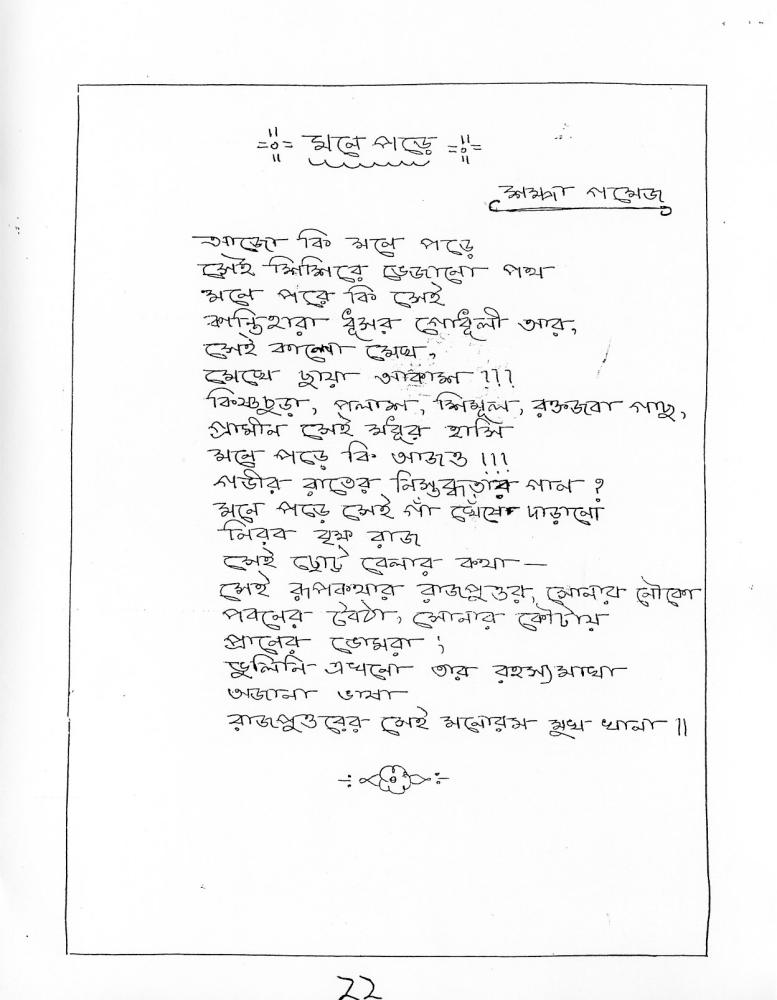 মনে পড়ে
গমেজ
আজো কি মনে পড়ে
সেই শিশিরে ভেজানো পথ
মনে পরে কি সেই
কান্তিহারা ধূসর গোধূলী আর,
সেই কালো মেঘ,
মেঘে ছায়া আকাশ ???
কিষ্ণচুড়া, পলাশ, শিমূল, রক্তজবা গাছ,
গ্রামীন সেই মধুর হাসি
মনে পড়ে কি আজও !!!
গভীর রাতের নিস্তব্ধতার গান ?
মনে পড়ে সেই গাঁ ঘেঁষে দাড়ানো
নিরব বৃক্ষ রাজ
সেই ছোট বেলার কথা —
সেই রূপকথার রাজপুত্তর, সোনার নৌকো
পবনের বৈঠা, সোনার কৌটায়
প্রানের ভোমরা ;
ভুলিনি এখনো তার রহস্যমাখা
অজানা ভাষা
রাজপুত্তরের সেই মনোরম মুখ খানা ॥
22